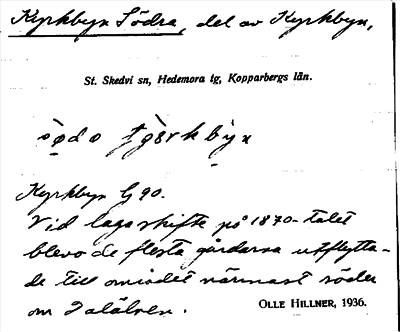 Kyrkbyn Södra, del av Kyrkbyn,
St. Skedvi sn, Hedemora tg, Kopparbergs län.
Kyrkbyn G 90.
Vid lagaskifte på 1870-talet
blevo de flesta gårdarna utflytta-
de till området närmast söder
om Dalälven.
OLLE HILLNER, 1936.